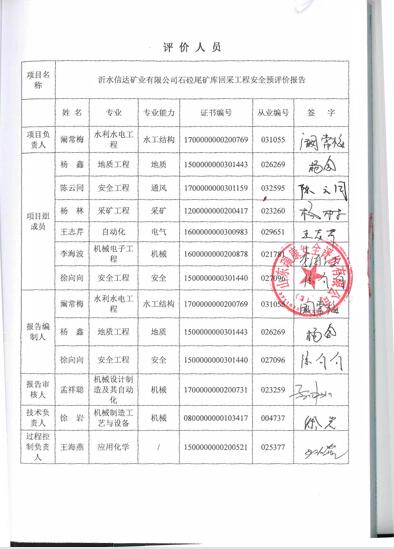 评价人员
项目名称 沂水信达矿业有限公司石砬尾矿库回采工程安全预评价报告
姓名 专业 专业能力 证书编号 从业编号 签字
项目负责人 阚常梅 水利水电工程 水工结构 1700000000200769 031055 阚常梅
项目组成员 杨鑫 地质工程 地质 1500000000301443 026269 杨鑫
陈云同 安全工程 通风 1700000000301159 032595 陈云同
杨林 采矿工程 采矿 1200000000200417 023260 杨林
王志芹 自动化 电气 1600000000300983 029651 王志芹
李海波 机械电子工程 机械 1600000000200878
徐向向 安全工程 安全 1500000000301440 027096
报告编制人 阚常梅 水利水电工程 水工结构 1700000000200769 031055 阚常梅
杨鑫 地质工程 地质 1500000000301443 026269 杨鑫
徐向向 安全工程 安全 1500000000301440 027096 徐向向
报告审核人 孟祥聪 机械设计制造及其自动化 机械 1700000000200731 023259
技术负责人 徐岩 机械制造工艺与设备 机械 0800000000103417 004737 徐岩
过程控制负责人 王海燕 应用化学 / 1500000000200521 025377